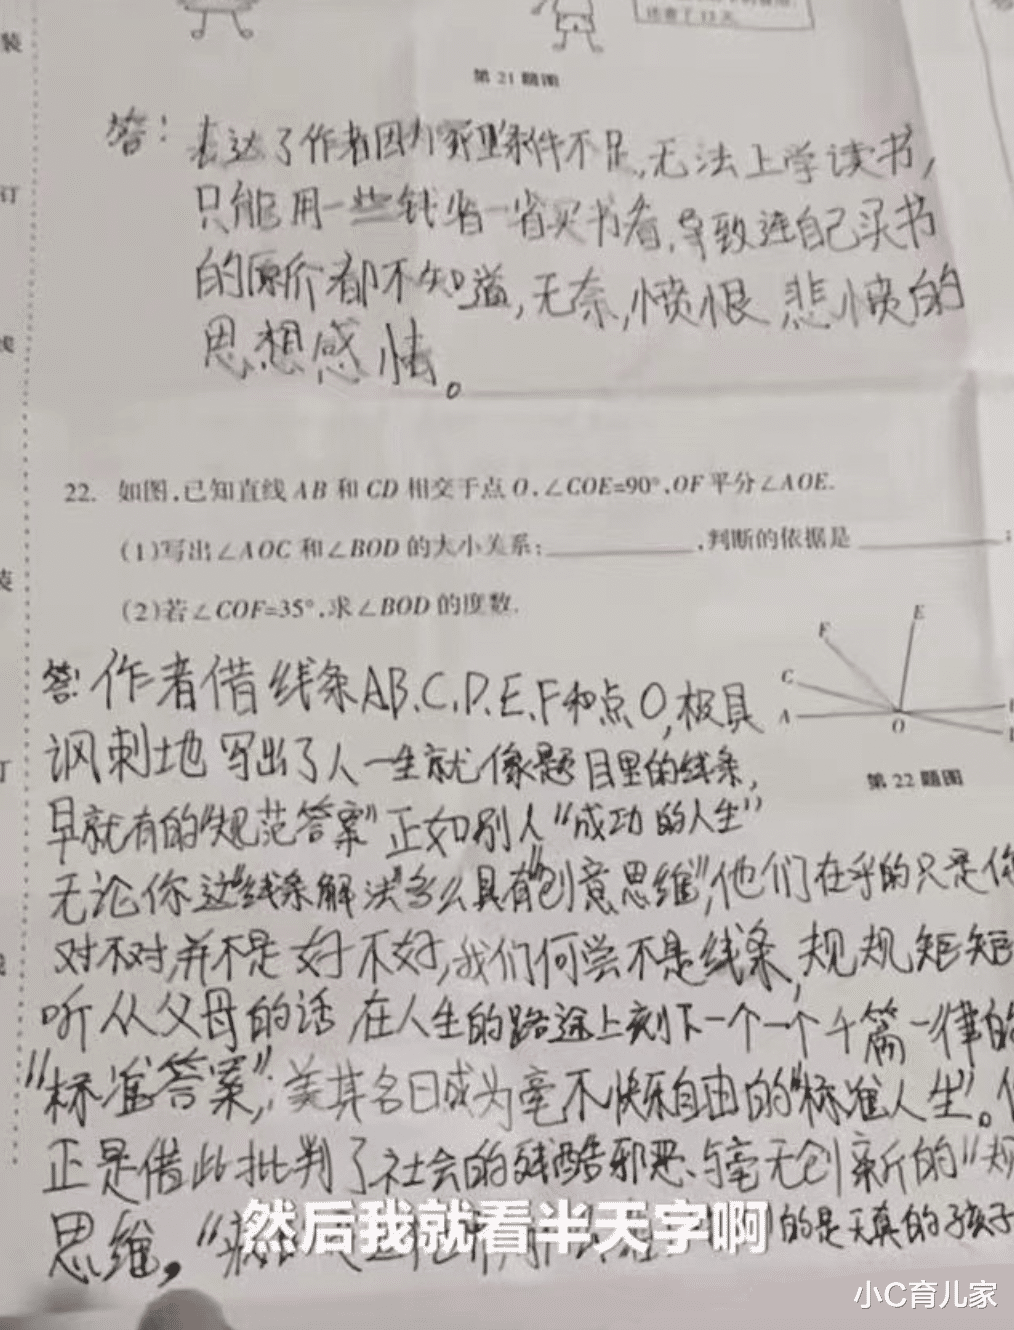 装
还省了13元
第21题图
答：表达了作者因为家里条件不足,无法上学读书,
只能用一些钱省一省买书看,导致连自己买书
的原价都不知道,无奈,愤恨 悲愤的
思想感情。
订
线
22. 如图,已知直线AB和CD相交于点O,∠COE=90°,OF平分∠AOE.
(1)写出∠AOC和∠BOD的大小关系:________,判断的依据是________;
(2)若∠COF=35°,求∠BOD的度数.
装
F
E
C
A
O
第22题图
答:作者借线条AB、C、D、E、F和点O,极具
讽刺地写出了人一生就像题目里的线条,
早就有的"规范答案"正如别人"成功的人生"
无论你这"线条解法"多么具有"创意思维",他们在乎的只是你
对不对,并不是好不好,我们何尝不是线条,规规矩矩
听从父母的话 在人生的路途上刻下一个一个千篇一律的
"标准答案",美其名曰成为毫不快乐自由的"标准人生"。
正是借此批判了社会的残酷邪恶、与毫无创新的"规
思维,
的是天真的孩子
订
然后我就看半天字啊
小C育儿家